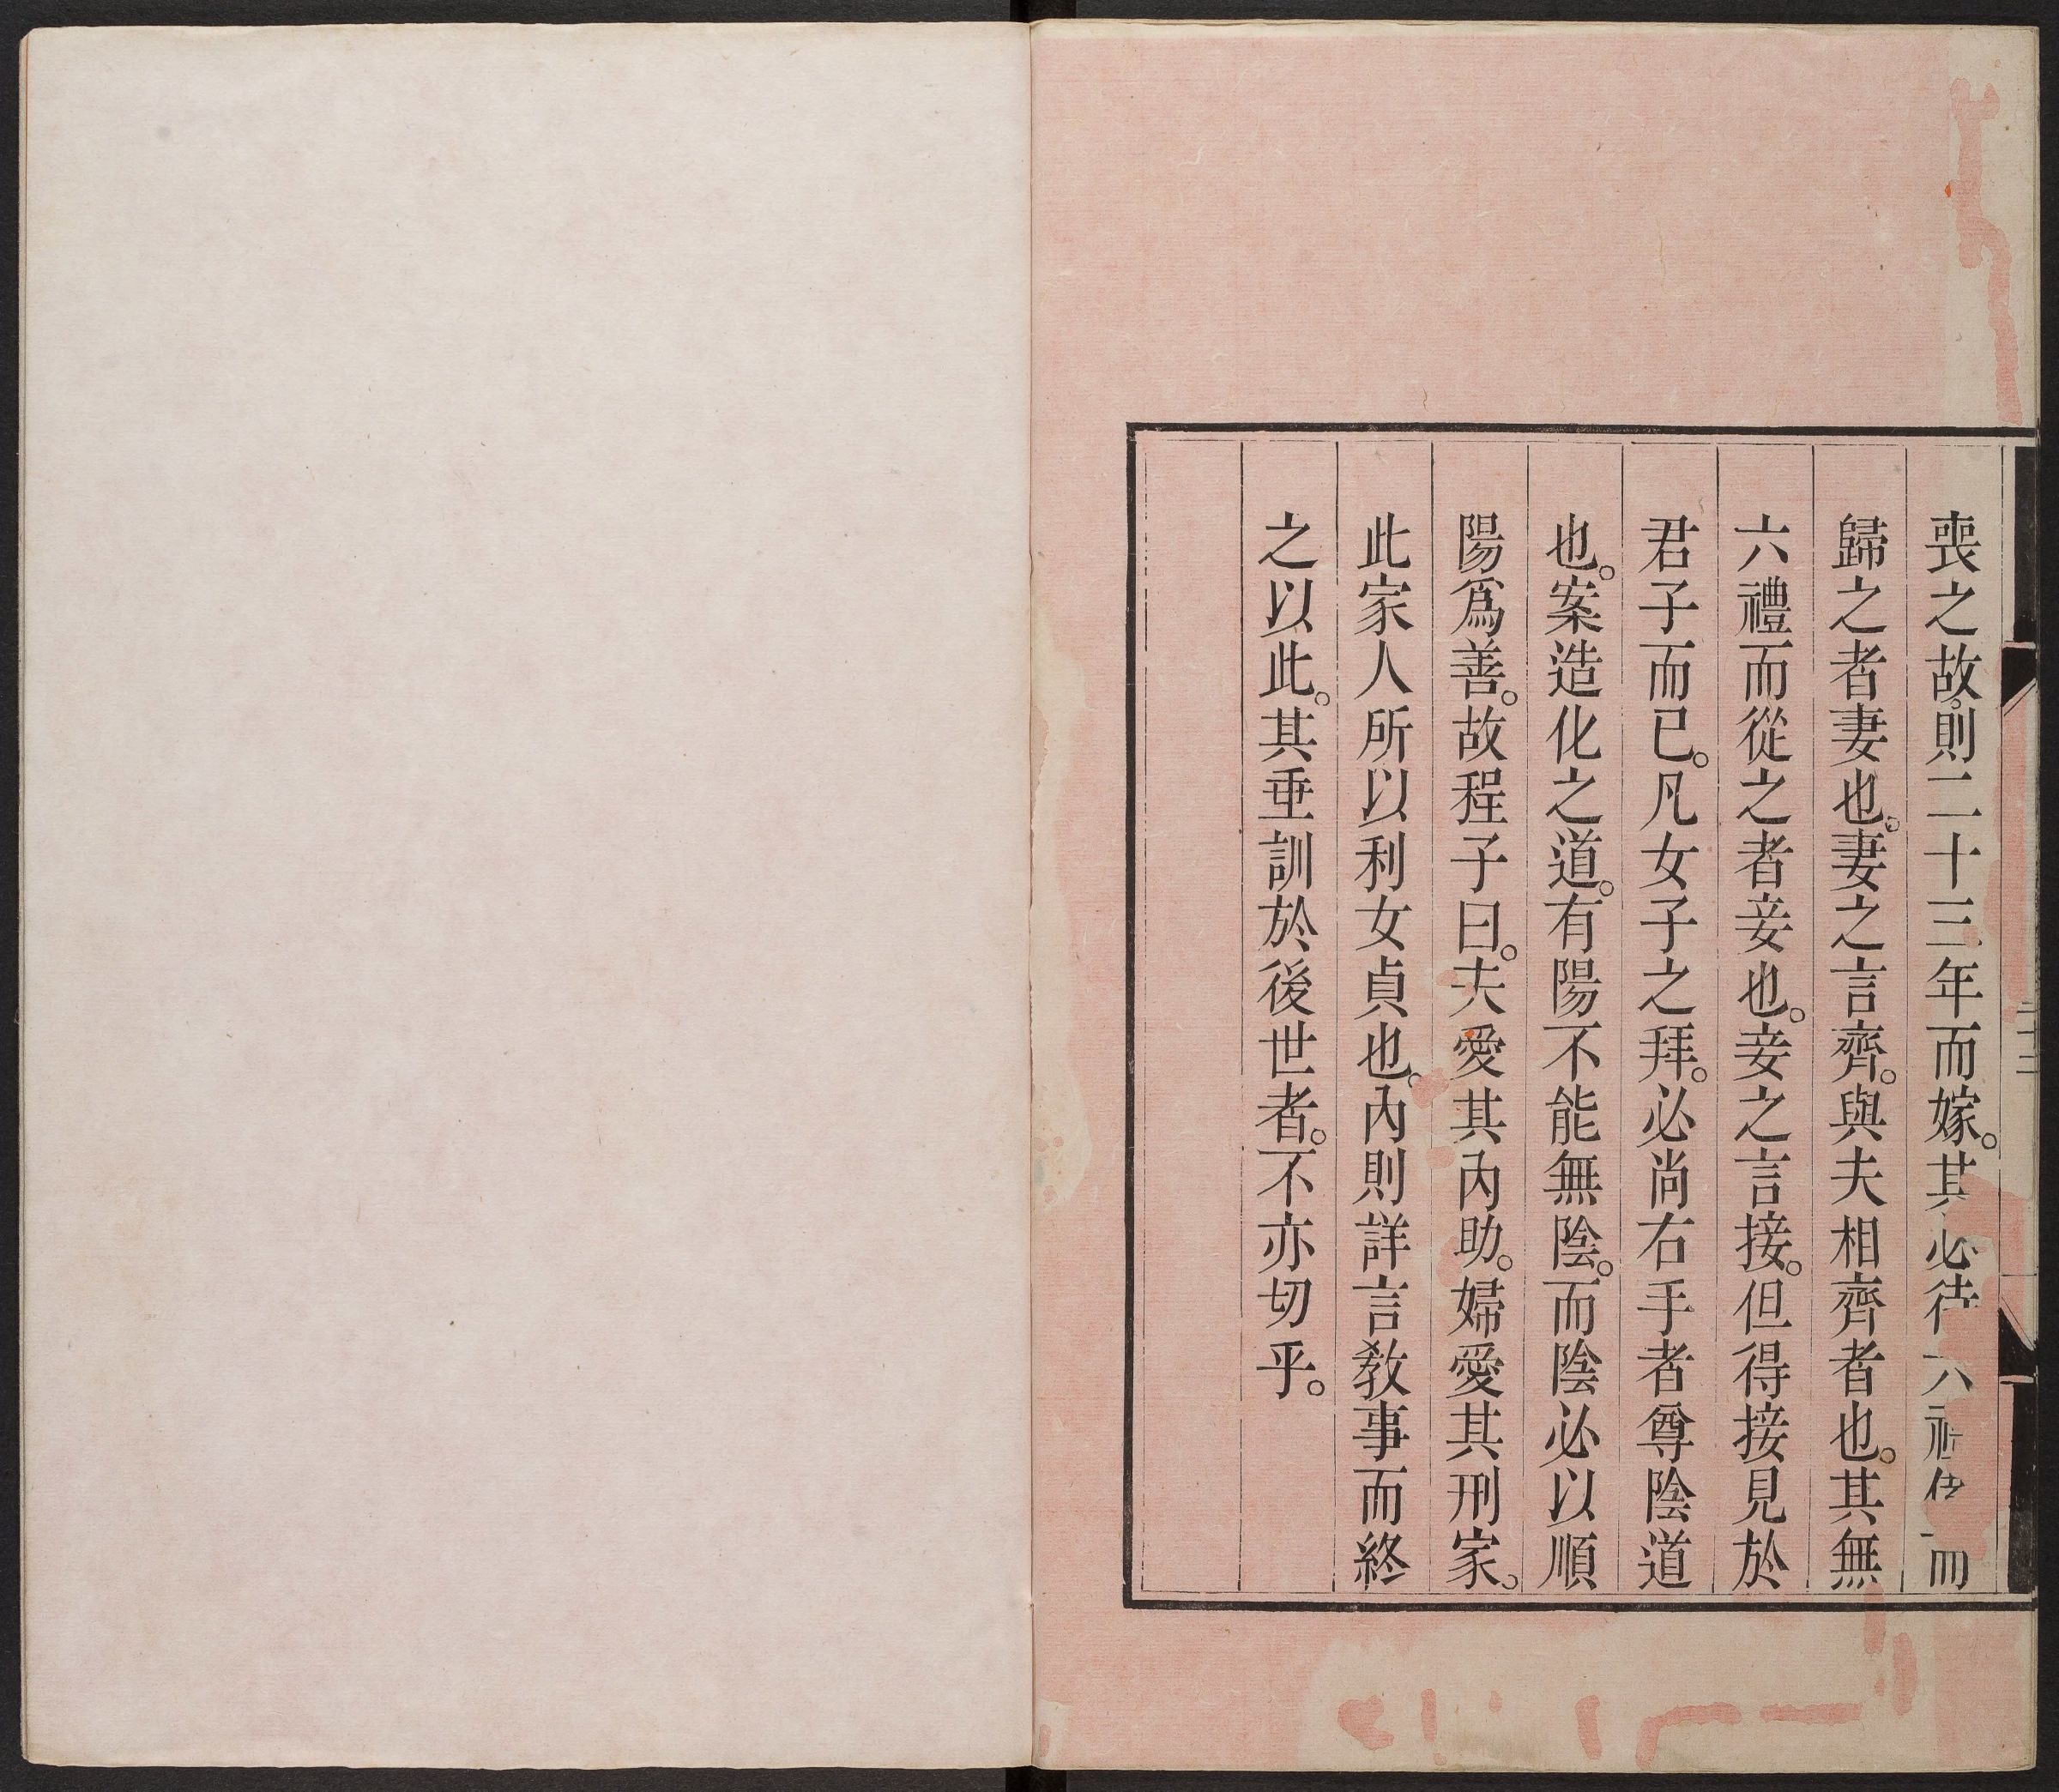 喪之故。則二十三年而嫁。其必待六禮
歸之者妻也。妻之言齊。與夫相齊者也。其無
六禮而從之者妾也。妾之言接。但得接見於
君子而已。凡女子之拜。必尚右手者尊陰道
也。案造化之道。有陽不能無陰。而陰必以順
陽爲善。故程子曰。夫愛其內助。婦愛其刑家。
此家人所以利女貞也。內則詳言敎事而終
之以此。其垂訓於後世者。不亦切乎。